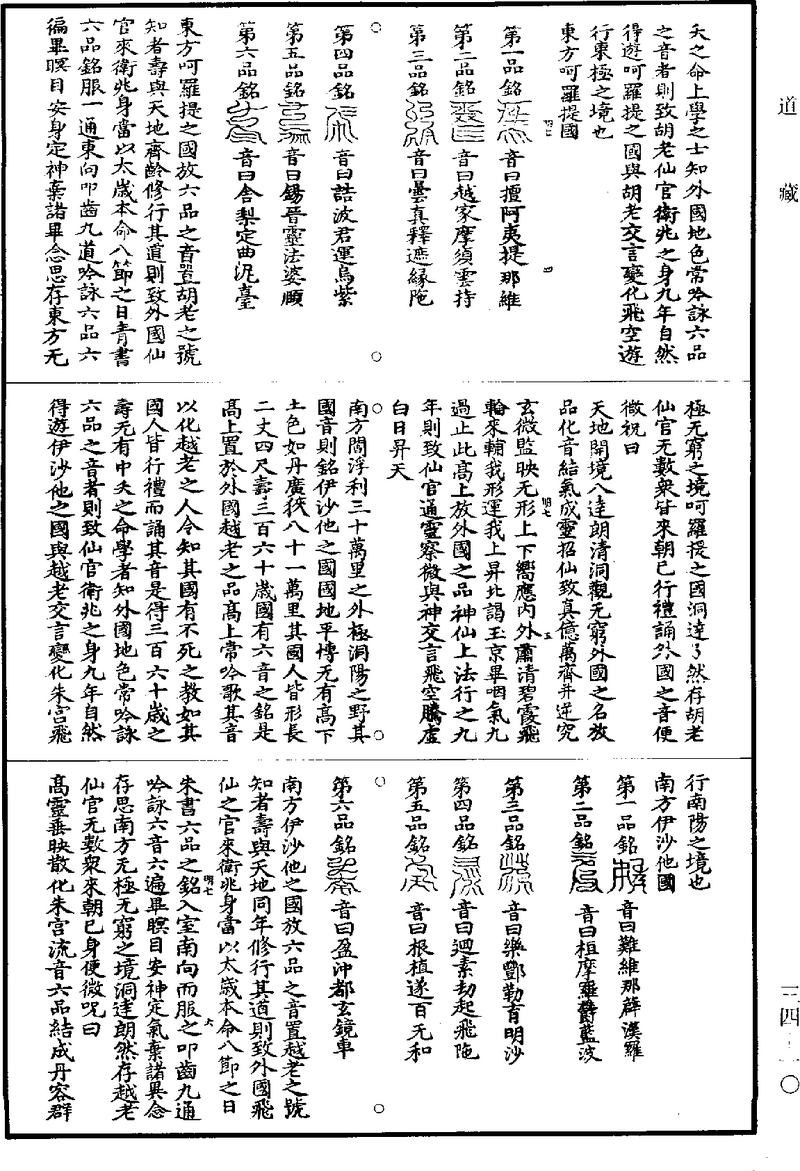 道藏
夭之命上學之士知外國地色常吟詠六品
之音者則致胡老仙官衛兆之身九年自然
得遊呵羅提之國與胡老交言變化飛空遊
行東極之境也
東方呵羅提國
第一品銘 音曰擅阿夷提那維
第二品銘 音曰越家摩須雲持
第三品銘 音曰曇真釋遮緣陁
第四品銘 音曰誥波君運烏紫
第五品銘 音曰錫晉靈法婆願
第六品銘 音曰舍梨定曲泥臺
東方呵羅提之國放六品之音置胡老之號
知者壽與天地齊齡修行其道則致外國仙
官來衛兆身當以太歲本命八節之日青書
六品銘服一通東向叩齒九道吟詠六品六
徧畢瞑目安身定神棄諸異念思存東方无
極无窮之境呵羅提之國洞達了然存胡老
仙官无數衆皆來朝已行禮誦外國之音便
微祝曰
天地開境八達朗清洞觀无窮外國之名放
品化音結氣成靈招仙致真億萬齊并逆究
玄微監映无形上下嚮應内外肅清碧霞飛
輪來輔我形運我上昇北謁玉京畢咽氣九
過止此高上放外國之品神仙上法行之九
年則致仙官通靈察微與神交言飛空騰虛
白日昇天
南方閻浮利三十萬里之外極洞陽之野其
國音則銘伊沙他之國國地平博无有高下
土色如丹廣狹八十一萬里其國人皆形長
二丈四尺壽三百六十歲國有六音之銘是
高上置於外國越老之品高上常吟歌其音
以化越老之人令知其國有不死之教如其
國人皆行禮而誦其音是得三百六十歲之
壽无有中夭之命學者知外國地色常吟詠
六品之音者則致仙官衛兆之身九年自然
得遊伊沙他之國與越老交言變化朱宫飛
行南陽之境也
南方伊沙他國
第一品銘 音曰難維那薜漢羅
第二品銘 音曰桓摩羅爵藍波
第三品銘 音曰樂酆勒育明沙
第四品銘 音曰廻素劫起飛陁
第五品銘 音曰根植遂百无和
第六品銘 音曰盈沖都玄鏡車
南方伊沙他之國放六品之音置越老之號
知者壽與天地同年修行其道則致外國飛
仙之官來衛兆身當以太歲本命八節之日
朱書六品之銘入室南向而服之叩齒九通
吟詠六音六遍畢瞑目安神定氣棄諸異念
存思南方无極无窮之境洞達朗然存越老
仙官无數衆來朝已身便微呪曰
高靈垂映散化朱宫流音六品結成丹容群
三四一一〇